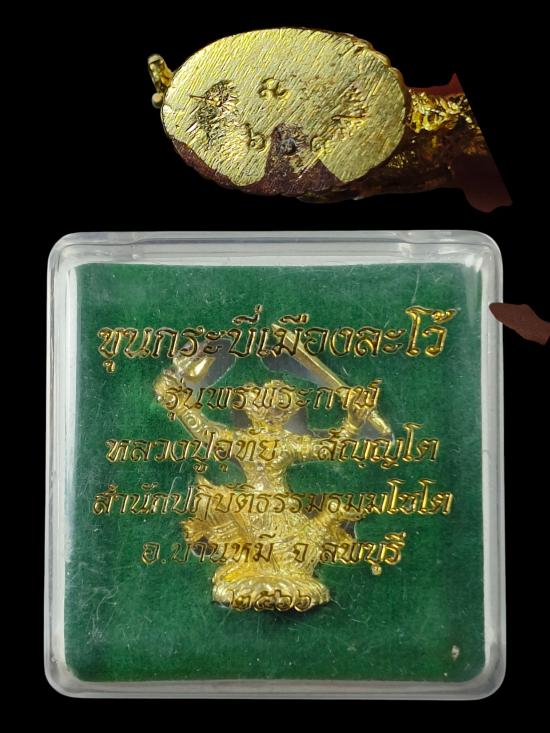 ขุนกระบี่เมืองละโว้
รุ่นพรพระกาฬ
หลวงปู่อุทัย สัญฺญโต
สำนักปฏิบัติธรรมธมฺมโชโต
อ.บ้านหมี่ จ.ลพบุรี
๒๕๖๖